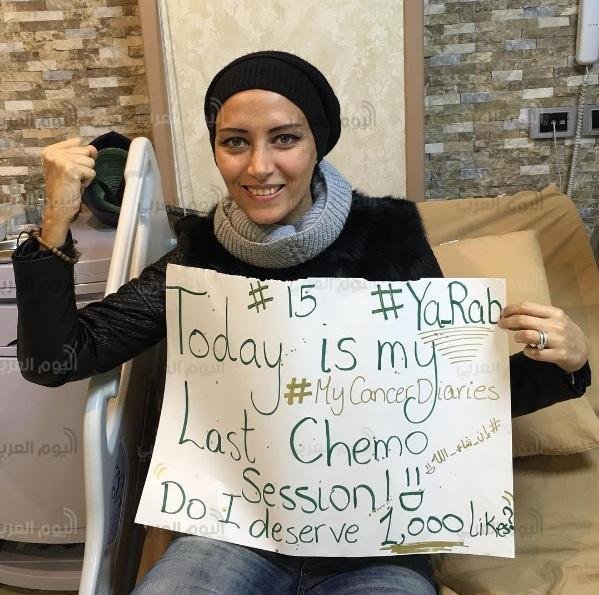 #15 #Ya_Rab
Today is my
#MyCancerDiaries
Last Chemo
#إن_شاء_الله
Session!
"Do I deserve 1,000 likes?"
اليوم العربي